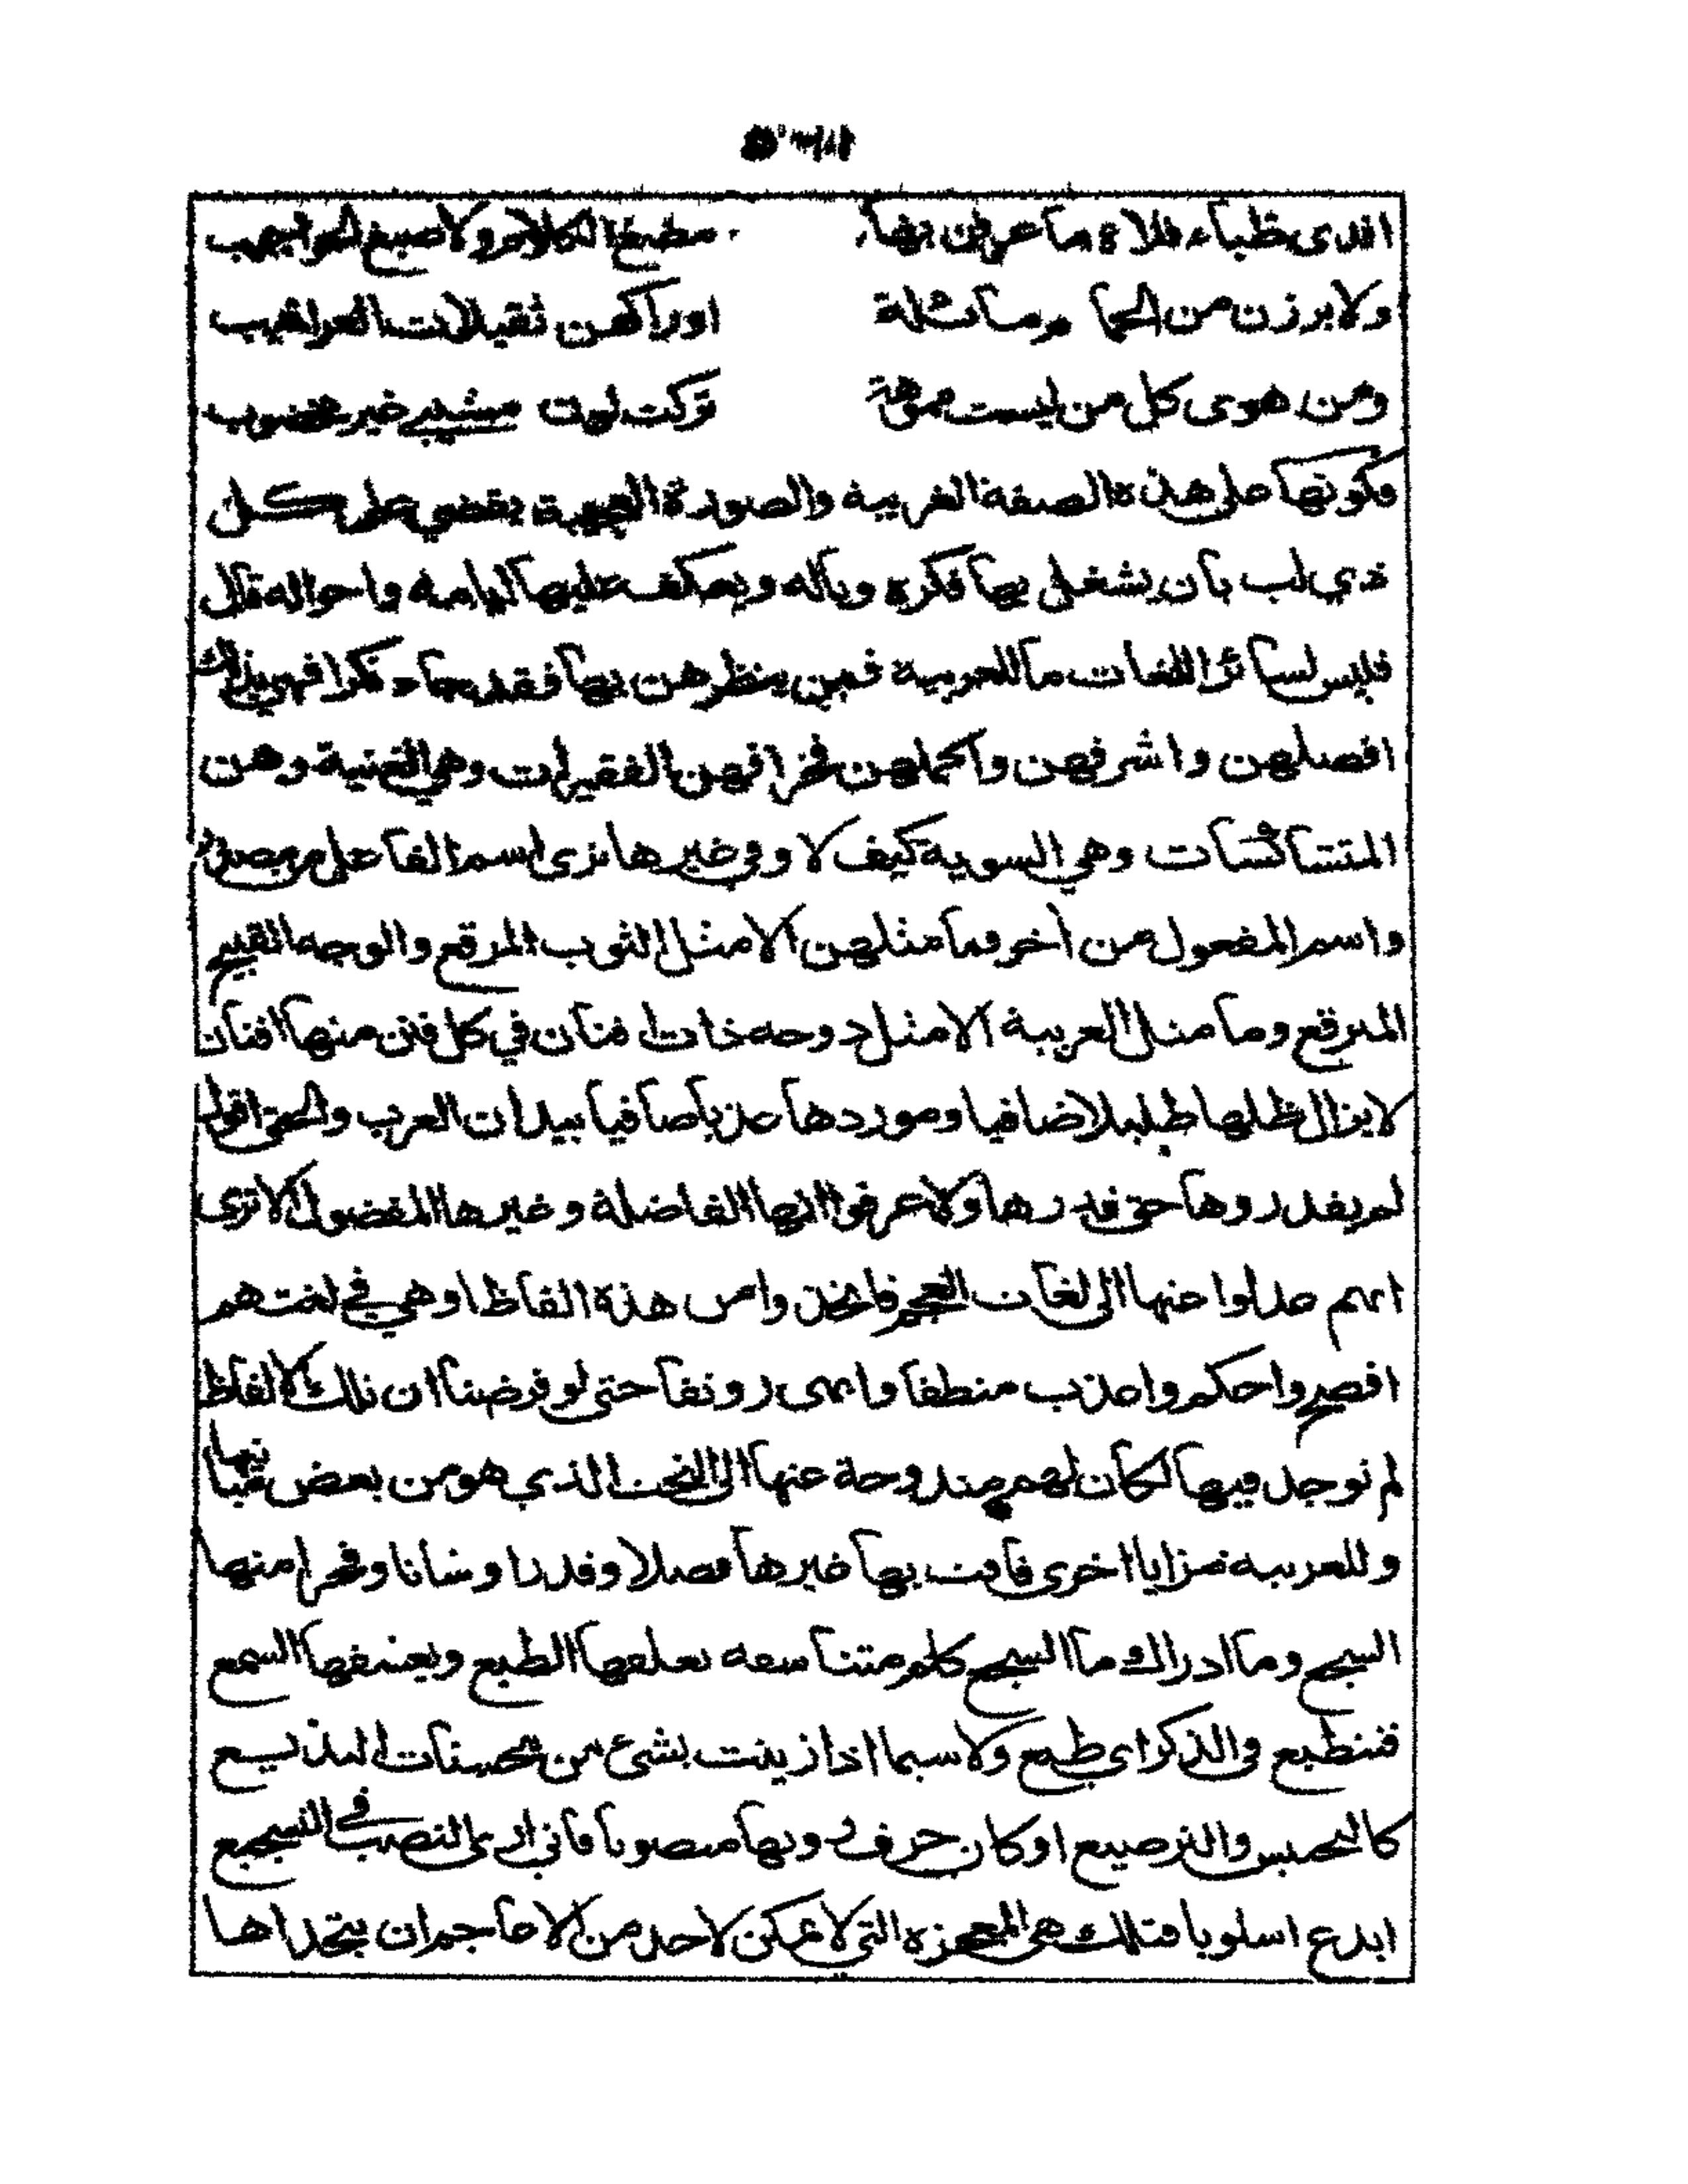 افدى ظباء فلاة ما عرفن بها مضغ الكلام ولا صبغ الحواجيب
ولا برزن من الحمام ماثلة اوراكهن ثقيلات العراقيب
ومن هوى كل من ليست مموهة تركت لون مشيبي غير مخضوب
وكونها على هذه الصفة الغريبة والصورة العجيبة يقضي على كل
ذي لب بان يشغل بها فكره وباله ويعكف عليها ايامه واحواله قال
فليس لسائر اللغات ما للعربية فمن ينظرهن بها فقد جاء نكرا فهي بذلك
افضلهن واشرفهن واكملهن فخرا فهن الفقيرات وهي الغنية وهن
المتشاكسات وهي السوية كيف لا وفي غيرها نرى اسم الفاعل من مصدر
واسم المفعول من آخر وما مثلهن الا مثل الثوب المرقع والوجه القبيح
المبرقع وما مثل العربية الا مثل دوحه ذات افنان في كل فنن منها افنان
لا يزال ظلها ظليلا ضافيا وموردها عذبا صافيا بيد ان العرب والحق اقول
لم يقدروها حق قدرها ولا عرفوا انها الفاضلة وغيرها المفضول الا ترى
انهم عدلوا عنها الى لغات العجم فاتخذوا من هذه الفاظا وهي في لغتهم
افصح واحكم واعذب منطقا وابهى رونقا حتى لو فرضنا ان تلك الالفاظ
لم توجد فيها لكان لهم مندوحة عنها الى النحت الذي هو من بعض
وللعربيه مزايا اخرى فاقت بها غيرها فضلا وقدرا وشانا وفخرا منها
السجع وما ادراك ما السجع كلم متناسقه يعلقها الطبع ويعشقها السمع
فتنطبع في الذكر اى طبع ولا سيما اذا زينت بشئ من محسنات البديع
كالتجنيس والترصيع او كان حرف رويها منصوبا فاني ارى النصب في التسجيع
ابدع اسلوبا فتلك هي المعجزه التي لا يمكن لاحد من الاعاجم ان يتحداها